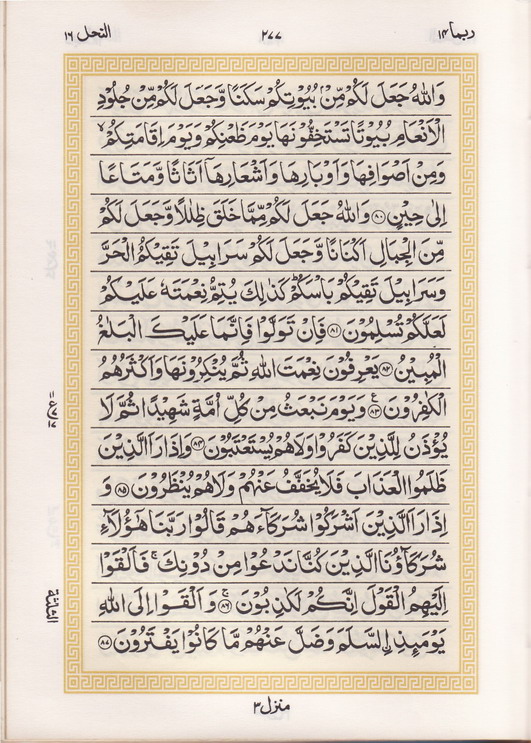 ربما ١٤ ٢٧٧ النحل ١٦
وَاللّٰهُ جَعَلَ لَكُمْ مِّنْۢ بُيُوْتِكُمْ سَكَنًا وَّجَعَلَ لَكُمْ مِّنْ جُلُوْدِ
الْاَنْعَامِ بُيُوْتًا تَسْتَخِفُّوْنَهَا يَوْمَ ظَعْنِكُمْ وَيَوْمَ اِقَامَتِكُمْ ۙ
وَمِنْ اَصْوَافِهَا وَاَوْبَارِهَا وَاَشْعَارِهَاۤ اَثَاثًا وَّمَتَاعًا
اِلٰى حِيْنٍ ﴿٨٠﴾ وَاللّٰهُ جَعَلَ لَكُمْ مِّمَّا خَلَقَ ظِلٰلًا وَّجَعَلَ لَكُمْ
مِّنَ الْجِبَالِ اَكْنَانًا وَّجَعَلَ لَكُمْ سَرَابِيْلَ تَقِيْكُمُ الْحَرَّ
وَسَرَابِيْلَ تَقِيْكُمْ بَاْسَكُمْ ؕ كَذٰلِكَ يُتِمُّ نِعْمَتَهٗ عَلَيْكُمْ
لَعَلَّكُمْ تُسْلِمُوْنَ ﴿٨١﴾ فَاِنْ تَوَلَّوْا فَاِنَّمَا عَلَيْكَ الْبَلٰغُ
الْمُبِيْنُ ﴿٨٢﴾ يَعْرِفُوْنَ نِعْمَتَ اللّٰهِ ثُمَّ يُنْكِرُوْنَهَا وَاَكْثَرُهُمُ
الْكٰفِرُوْنَ ﴿٨٣﴾ ع وَيَوْمَ نَبْعَثُ مِنْ كُلِّ اُمَّةٍ شَهِيْدًا ثُمَّ لَا
يُؤْذَنُ لِلَّذِيْنَ كَفَرُوْا وَلَا هُمْ يُسْتَعْتَبُوْنَ ﴿٨٤﴾ وَاِذَا رَاَ الَّذِيْنَ
ظَلَمُوا الْعَذَابَ فَلَا يُخَفَّفُ عَنْهُمْ وَلَا هُمْ يُنْظَرُوْنَ ﴿٨٥﴾ وَ
اِذَا رَاَ الَّذِيْنَ اَشْرَكُوْا شُرَكَآءَهُمْ قَالُوْا رَبَّنَا هٰٓؤُلَآءِ
شُرَكَآؤُنَا الَّذِيْنَ كُنَّا نَدْعُوْا مِنْ دُوْنِكَ ۚ فَاَلْقَوْا
اِلَيْهِمُ الْقَوْلَ اِنَّكُمْ لَكٰذِبُوْنَ ﴿٨٦﴾ ۚ وَاَلْقَوْا اِلَى اللّٰهِ
يَوْمَئِذِ ۣالسَّلَمَ وَضَلَّ عَنْهُمْ مَّا كَانُوْا يَفْتَرُوْنَ ﴿٨٧﴾
الثلثة
منزل ٣